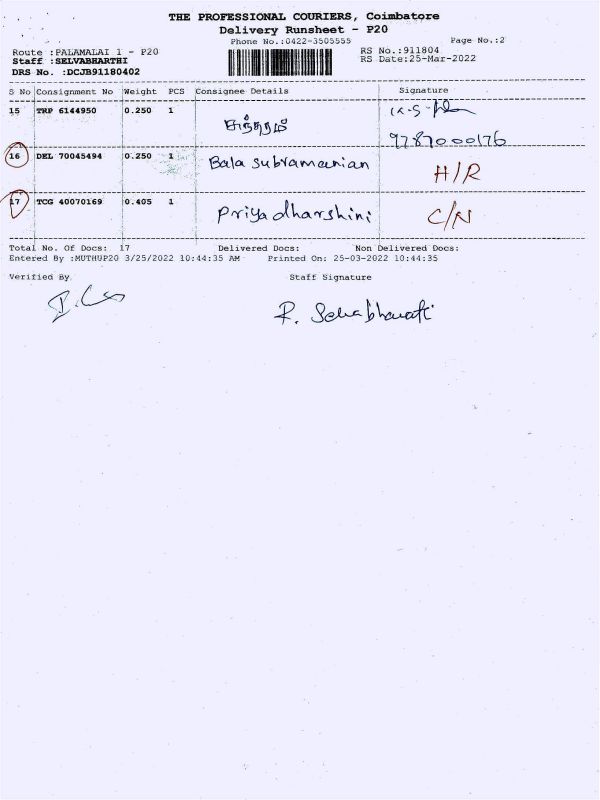 THE PROFESSIONAL COURIERS, Coimbatore
Delivery Runsheet - P20
Phone No.:0422-3505555 Page No.:2
Route :PALAMALAI 1 - P20 RS No.:911804
Staff :SELVABHARTHI RS Date:25-Mar-2022
DRS No. :DCJB91180402
S No Consignment No Weight PCS Consignee Details Signature
15 TRP 6144950 0.250 1
9787000176
16 DEL 70045494 0.250 1 Bala subramanian H/R
17 TCG 40070169 0.405 1 Priyadharshini C/N
Total No. Of Docs: 17 Delivered Docs: Non Delivered Docs:
Entered By :MUTHUP20 3/25/2022 10:44:35 AM Printed On: 25-03-2022 10:44:35
Verified By Staff Signature
R.